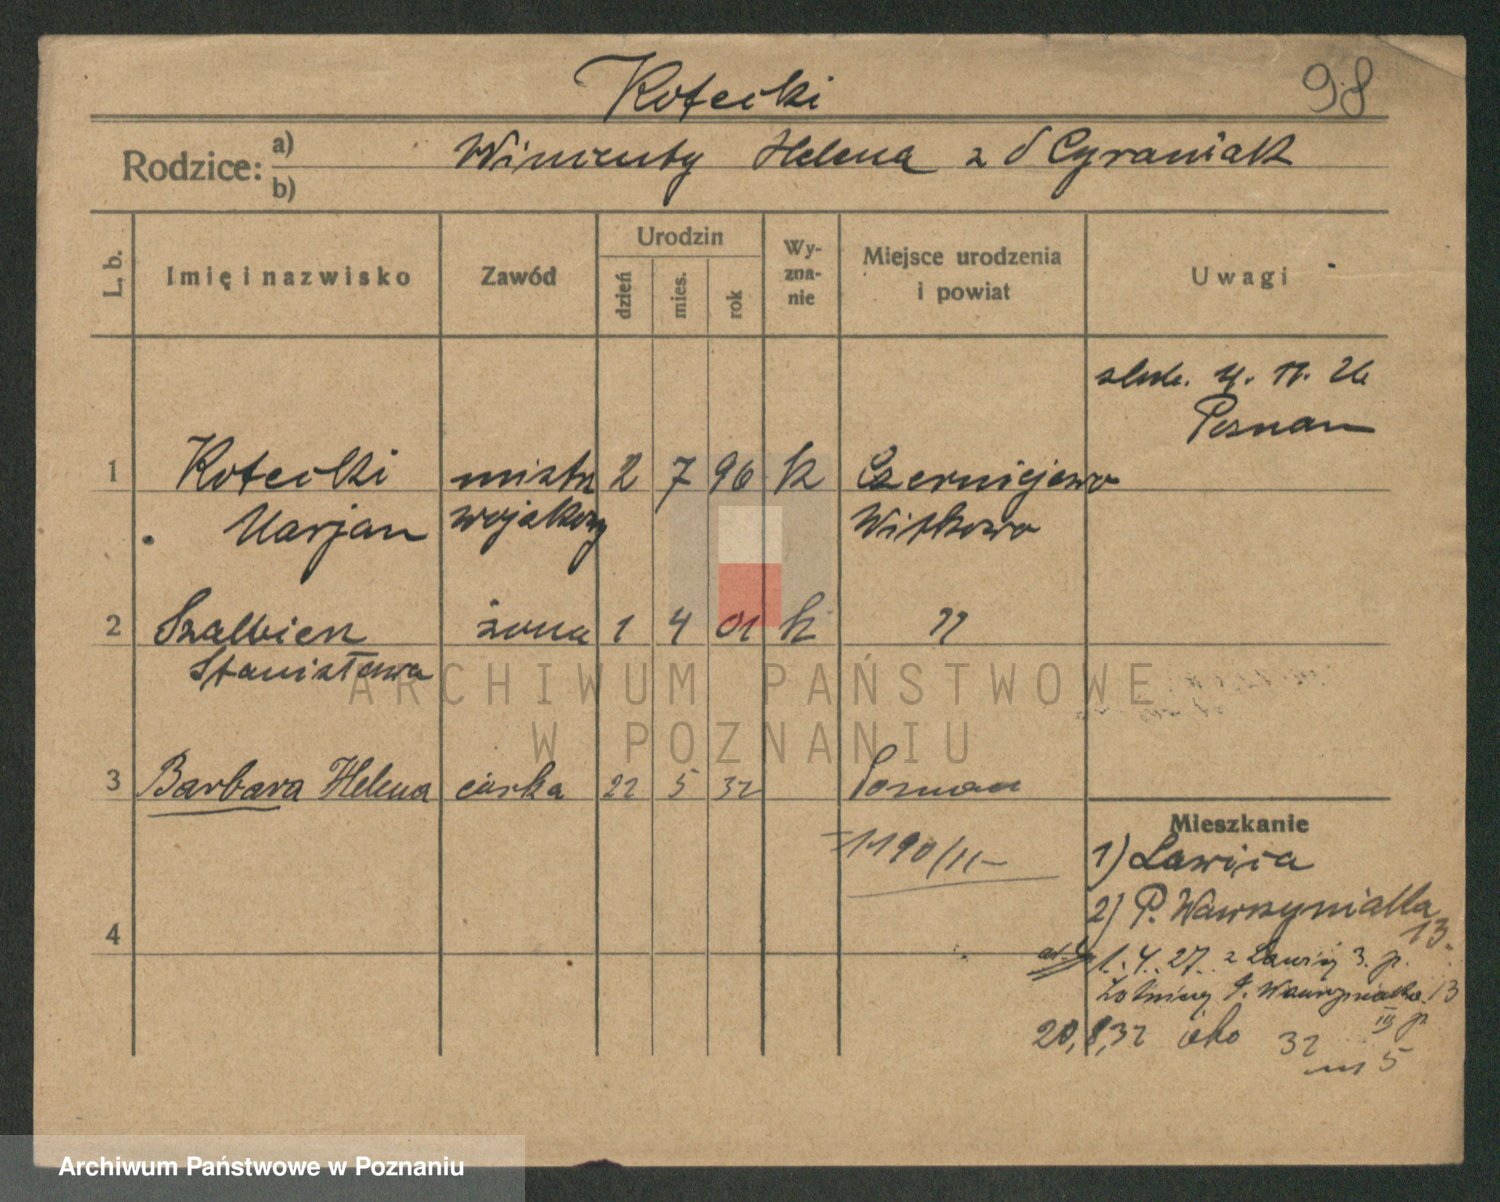 Kotecki
98
Rodzice: a) Wincenty Helena z d Cyraniak
b)
L. b.
Imię i nazwisko
Zawód
Urodzin
dzień
mies.
rok
Wy-
zna-
nie
Miejsce urodzenia
i powiat
Uwagi
4. 11. 26
Poznan
1 Kotecki mistrz 2 7 96 k Czerniejewo
Marjan wojskowy Witkowo
2 Szalbierz żona 1 4 01 k "
Stanisława
3 Barbara Helena córka 22 5 32 Poznan
Mieszkanie
1190/II-
1) Lawica
2) P. Wawrzyniaka
13.
4
1. 4. 27. z Lawicy 3. p.
Lotniczy P. Wawrzyniaka 13
III p
20,8,32 32
m 5
ARCHIWUM PAŃSTWOWE
W POZNANIU
Archiwum Państwowe w Poznaniu